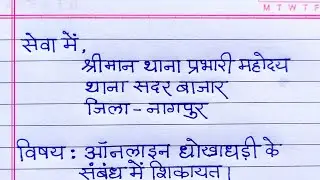 M T W T F
सेवा में,
श्रीमान थाना प्रभारी महोदय
थाना सदर बाजार
जिला - नागपुर
विषय : ऑनलाइन धोखाधड़ी के
संबंध में शिकायत।